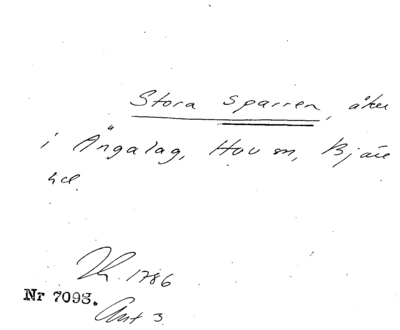 Stora Sparren, åker
i Ängalag, Hov sn, Bjäre
hd.
1786
Nr 7093.
Ant 3